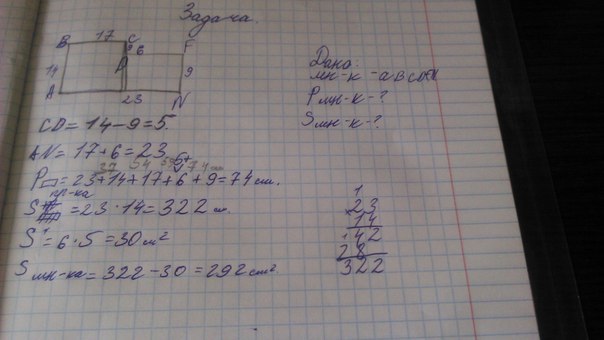 Задача.
B 17 C F
6
14 D 9
A 23 N
Дано:
мн-к - ABCDFN
Pмн-к-?
Sмн-к-?
CD = 14-9=5.
AN = 17+6=23
P▭ = 23+14+17+6+9=74 см.
пр-ка
S = 23·14=322 см.
S¹ = 6·5=30 м²
Sмн-ка = 322-30=292 см²
1
×23
14
142
28
322